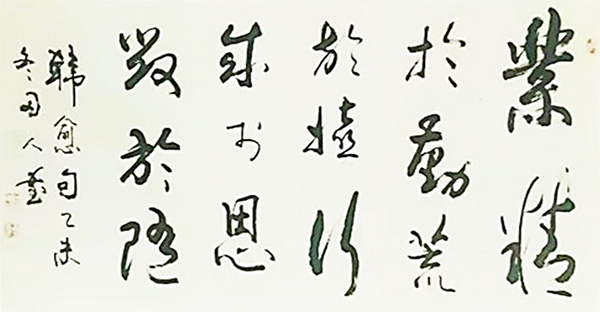 業精
於勤荒
於嬉行
成于思
毀於隨
韓愈句乙未
冬